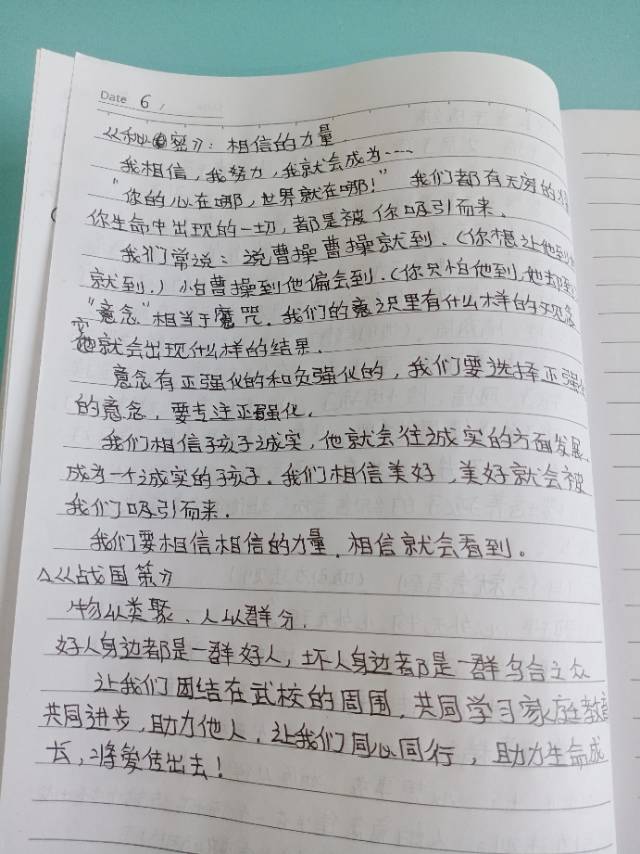 Date 6 /
《秘密》：相信的力量
我相信，我努力，我就会成为……
“你的心在哪，世界就在哪！”我们都有无穷的
你生命中出现的一切，都是被你吸引而来．
我们常说：说曹操曹操就到．（你想让他到
就到．）怕曹操到他偏会到．（你只怕他到，他
“意念”相当于魔咒．我们的意识里有什么样的
就会出现什么样的结果．
意念有正强化的和负强化的，我们要选择正强化
的意念，要专注正强化．
我们相信孩子诚实，他就会往诚实的方面发展
成为一个诚实的孩子．我们相信美好，美好就会被
我们吸引而来．
我们要相信相信的力量．相信就会看到。
△《战国策》
物以类聚．人以群分．
好人身边都是一群好人，坏人身边都是一群乌合之众
让我们团结在武校的周围，共同学习家庭教育
共同进步，助力他人，让我们同心同行，助力生命成
长，将爱传出去！